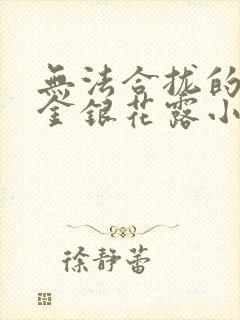 無法合拢的
金銀花露小
徐静蕾